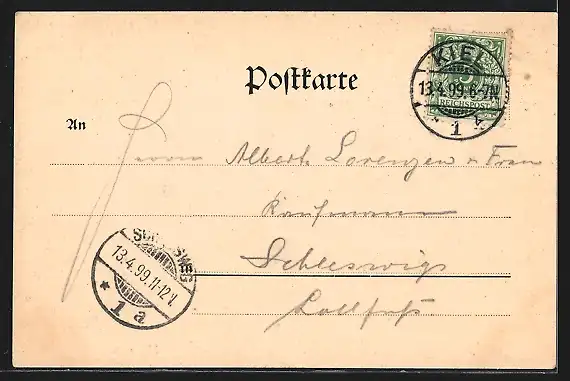 Postkarte
KIEL
13.4.99.6-7N.
* 1 k
5
REICHSPOST
An
Herrn Albert Lorenzen u Frau
Kaufmann
Schleswig
Lollfuß
SCHLESWIG
13.4.99.11-12V.
* 1 a